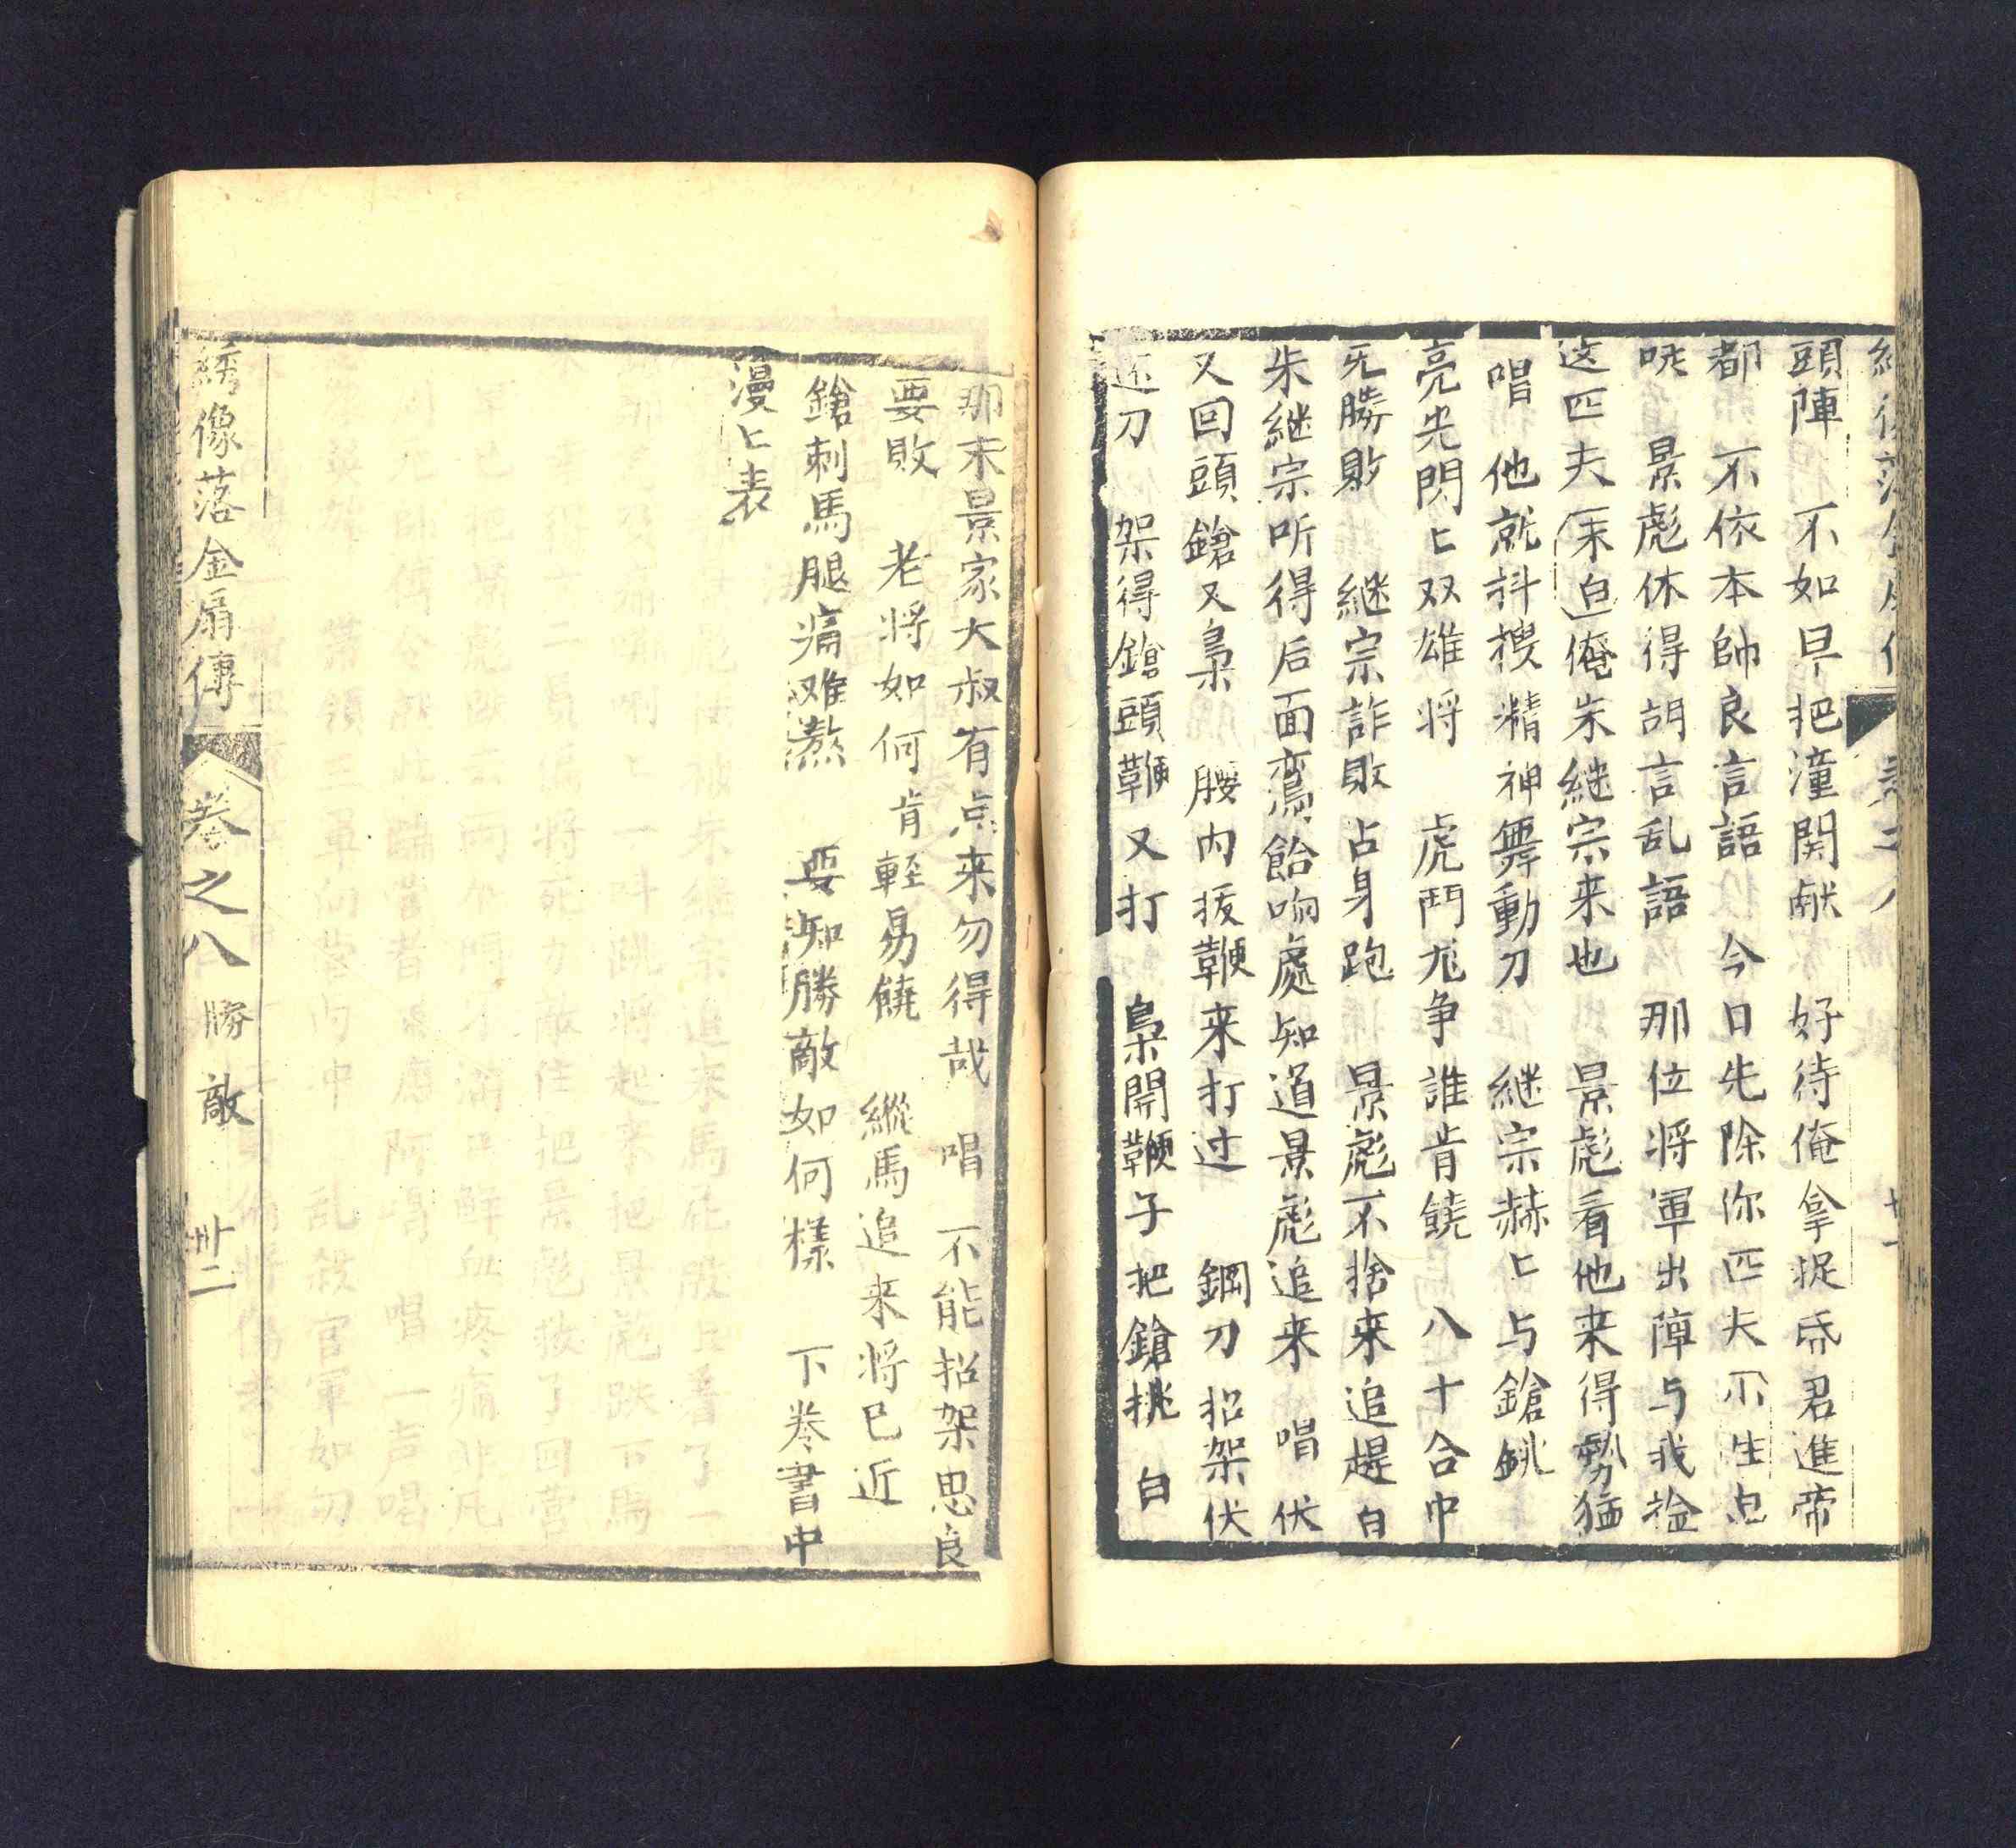 頭陣　不如早把潼関献　好待俺拿捉昏君進帝
都　不依本帥良言語　今日先除你匹夫　不生白
唗　景彪休得胡言乱語　那位将軍出陣与我擒
这匹夫　末白　俺朱継宗来也　景彪看他来得勢猛
唱　他就抖擻精神舞動刀　継宗赫匕与鎗挑
亮光閃匕双雄将　虎鬥尨争誰肯饒　八十合中
无勝敗　継宗詐敗占身跑　景彪不捨来追趕　白
朱継宗听得后面鸞鈴响處知道景彪追来　唱　伏
又回頭鎗又梟　腰内拔鞭来打过　鋼刀招架伏
还刀　架得鎗頭鞭又打　梟開鞭子把鎗挑　白
那末景家大叔有点来勿得哉　唱　不能招架思良
要敗　老将如何肯輕易饒　縱馬追来将已近
鎗刺馬腿痛难熬　要知勝敵如何樣　下卷書中
漫匕表
綉像落金扇傳　卷之八　勝敵　卅二